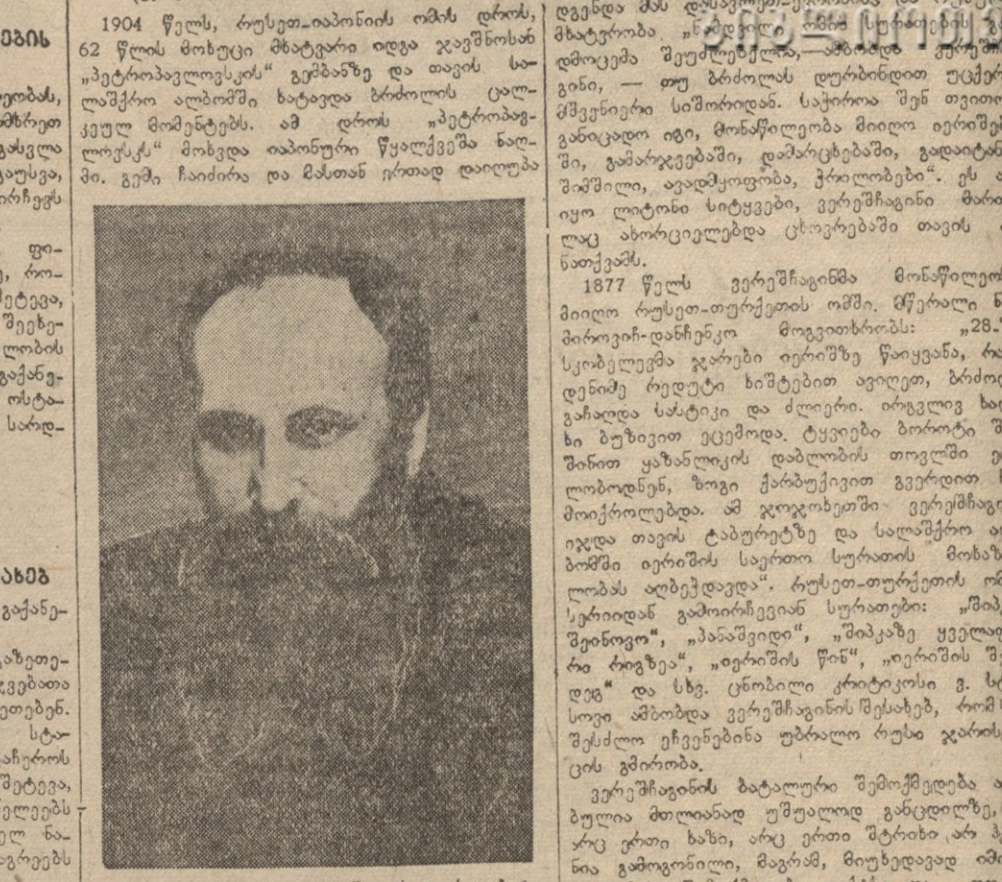 ების
ეობას,
ამხრეთ
გასვლა
გაუსვა,
ირჩევს
ფი–
რო–
ეტევა,
შეეხე–
ლობის
გაქანე–
ოსტა–
სარდ–
ახებ
გაქანე–
გაზეთე–
ვებათა
ეთებენ.
სტა–
აჩეროს
შეტევა,
ელეებს
ელ ნა–
აგრეებს
1904 წელს, რუსეთ–იაპონიის ომის დროს,
62 წლის მოხუცი მხატვარი იდგა ჯავშნოსან
„პეტროპავლოვსკის“ გემბანზე და თავის სა–
ლაშქრო ალბომში ხატავდა ბრძოლის ცალ–
კეულ მომენტებს. ამ დროს „პეტროპავ–
ლოვსკს“ მოხვდა იაპონური წყალქვეშა ნაღ–
მი. გემი ჩაიძირა და მასთან ერთად დაიღუპა
დგენდა მას
მხატვრობა.
დმოცემა შეუძლებელია, — ამბობდა ვერეშჩა
გინი, — თუ ბრძოლას დურბინდით უცქერ
მშვენიერი სიშორიდან. საჭიროა შენ თვითო
განიცადო იგი, მონაწილეობა მიიღო იერიშებ
ში, გამარჯვებაში, დამარცხებაში, გადაიტან
შიმშილი, ავადმყოფობა, ჭრილობები“. ეს ა
იყო ლიტონი სიტყვები, ვერეშჩაგინი მართ
ლაც ახორციელებდა ცხოვრებაში თავის
ნათქვამს.
1877 წელს ვერეშჩაგინმა მონაწილეო
მიიღო რუსეთ–თურქეთის ომში. მწერალი ნ
მიროვიჩ-დანჩენკო მოგვითხრობს: „28.
სკობელევმა ჯარები იერიშზე წაიყვანა, რა
დენიმე რედუტი ხიშტებით ავიღეთ, ბრძო
გაჩაღდა სასტიკი და ძლიერი. ირგვლივ ხა
ხი ბუზივით ეცემოდა. ტყვიები ბოროტი შ
შინით ყაზანლიკის დაბლობის თოვლში ე
ლობოდნენ, ზოგი ქარბუქივით გვერდით
მოიქროლებდა. ამ ჯოჯოხეთში ვერეშჩაგი
იჯდა თავის ტაბურეტზე და სალაშქრო ალ
ბომში იერიშის საერთო სურათის მოხაზ
ლობას აღბეჭდავდა“. რუსეთ–თურქეთის ომ
სერიიდან გამოირჩევიან სურათები: „შიპ
შეინოვო“, „პანაშვიდი“, „შიპკაზე ყველაფ
რი რიგზეა“, „იერიშის წინ“, „იერიშის შე
დეგ“ და სხვ. ცნობილი კრიტიკოსი ვ. სტ
სოვი ამბობდა ვერეშჩაგინის შესახებ, რომ
შესძლო ეჩვენებინა უბრალო რუსი ჯარის
ცის გმირობა.
ვერეშჩაგინის ბატალური შემოქმედება ა
ბულია მთლიანად უშუალოდ განცდილზე,
არც ერთი ხაზი, არც ერთი შტრიხი არ
ნია გამოგონილი, მაგრამ, მიუხედავად იმი